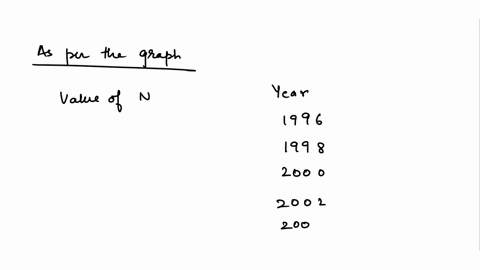 As per the graph
Value of N
Year
1996
1998
2000
2002
200